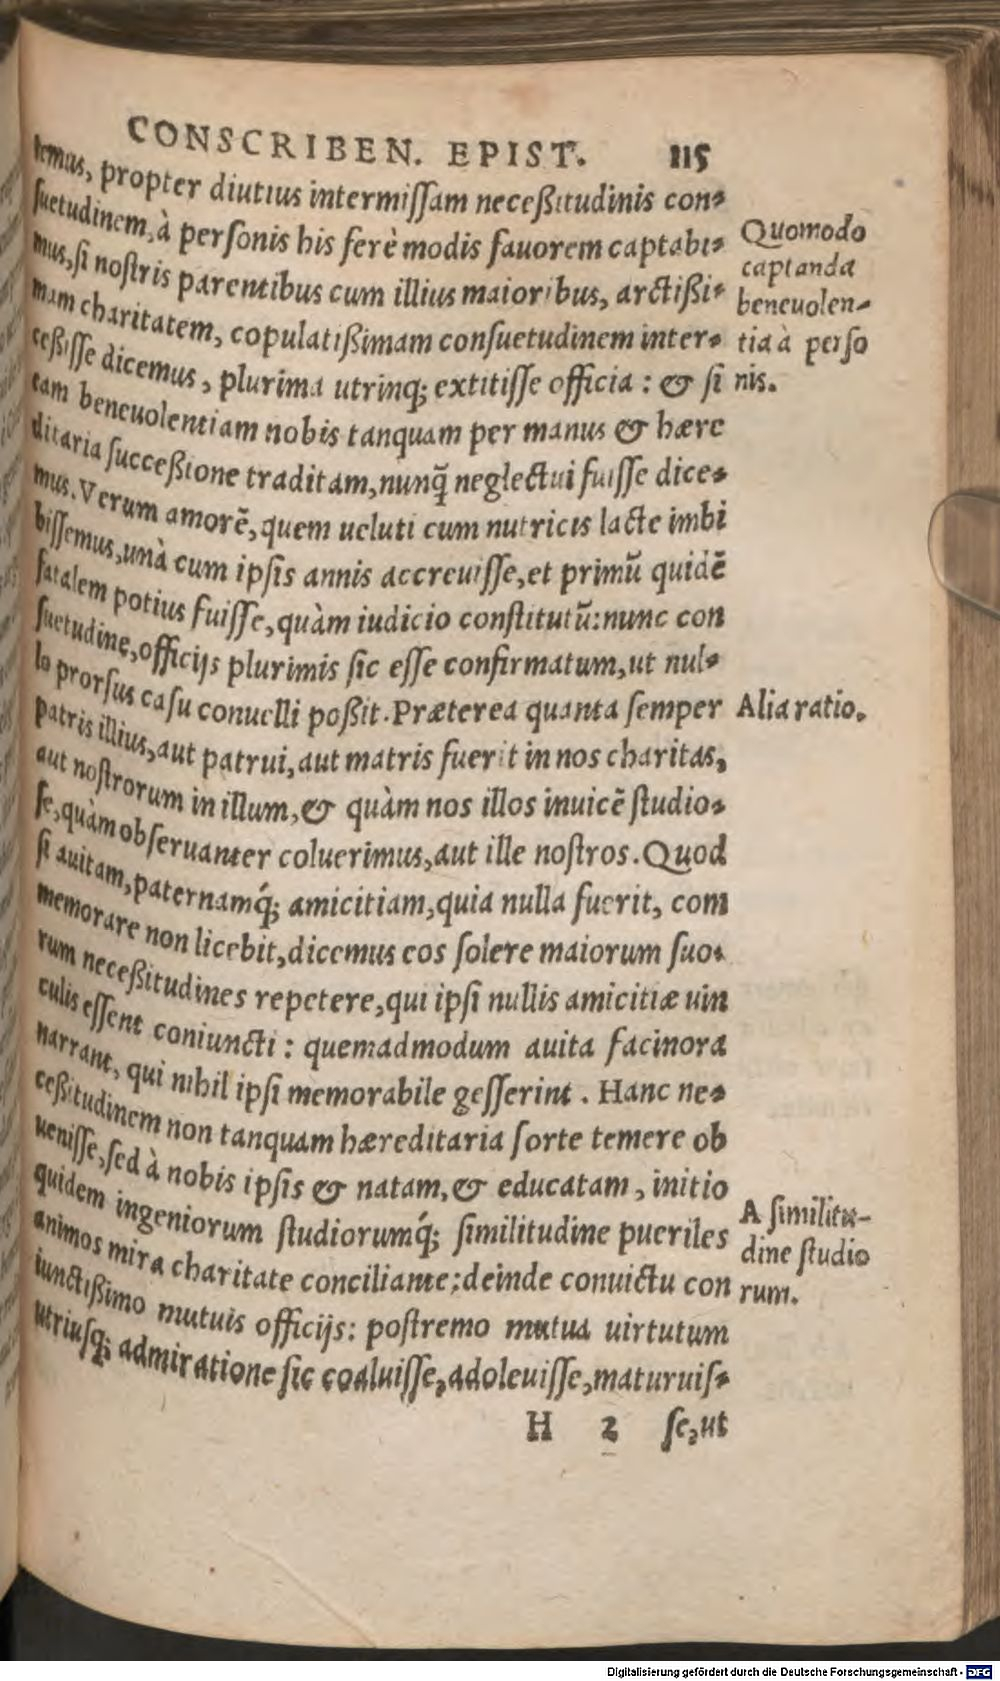 CONSCRIBEN. EPIST. 115
temus, propter diutius intermissam neceßitudinis con-
suetudinem, à personis his ferè modis fauorem captabi-
mus, si nostris parentibus cum illius maioribus, arctißi-
mam charitatem, copulatißimam consuetudinem inter-
ceßisse dicemus, plurima utrinq; extitisse officia: & si
eam beneuolentiam nobis tanquam per manus & hære
ditaria succeßione traditam, nunq̃ neglectui fuisse dice-
mus. Verum amorē, quem ueluti cum nutricis lacte imbi
bissemus, unà cum ipsis annis accreuisse, et primũ quidē
fatalem potius fuisse, quàm iudicio constitutũ: nunc con
suetudine, officijs plurimis sic esse confirmatum, ut nul-
lo prorsus casu conuelli poßit. Præterea quanta semper
patris illius, aut patrui, aut matris fuerit in nos charitas,
aut nostrorum in illum, & quàm nos illos inuicē studio-
se, quàm obseruanter coluerimus, aut ille nostros. Quod
si auitam, paternamq́; amicitiam, quia nulla fuerit, com
memorare non licebit, dicemus eos solere maiorum suo-
rum neceßitudines repetere, qui ipsi nullis amicitiæ uin
culis essent coniuncti: quemadmodum auita facinora
narrant, qui nihil ipsi memorabile gesserint. Hanc ne-
ceßitudinem non tanquam hæreditaria sorte temere ob
uenisse, sed à nobis ipsis & natam, & educatam, initio
quidem ingeniorum studiorumq́; similitudine pueriles
animos mira charitate conciliante; deinde conuictu con
iunctißimo mutuis officijs: postremo mutua uirtutum
utriusq; admiratione sic coaluisse, adoleuisse, maturuis-
H 2 se, ut
Quomodo
captanda
beneuolen-
tia à perso
nis.
Alia ratio.
A similitu-
dine studio
rum.
Digitalisierung gefördert durch die Deutsche Forschungsgemeinschaft - DFG